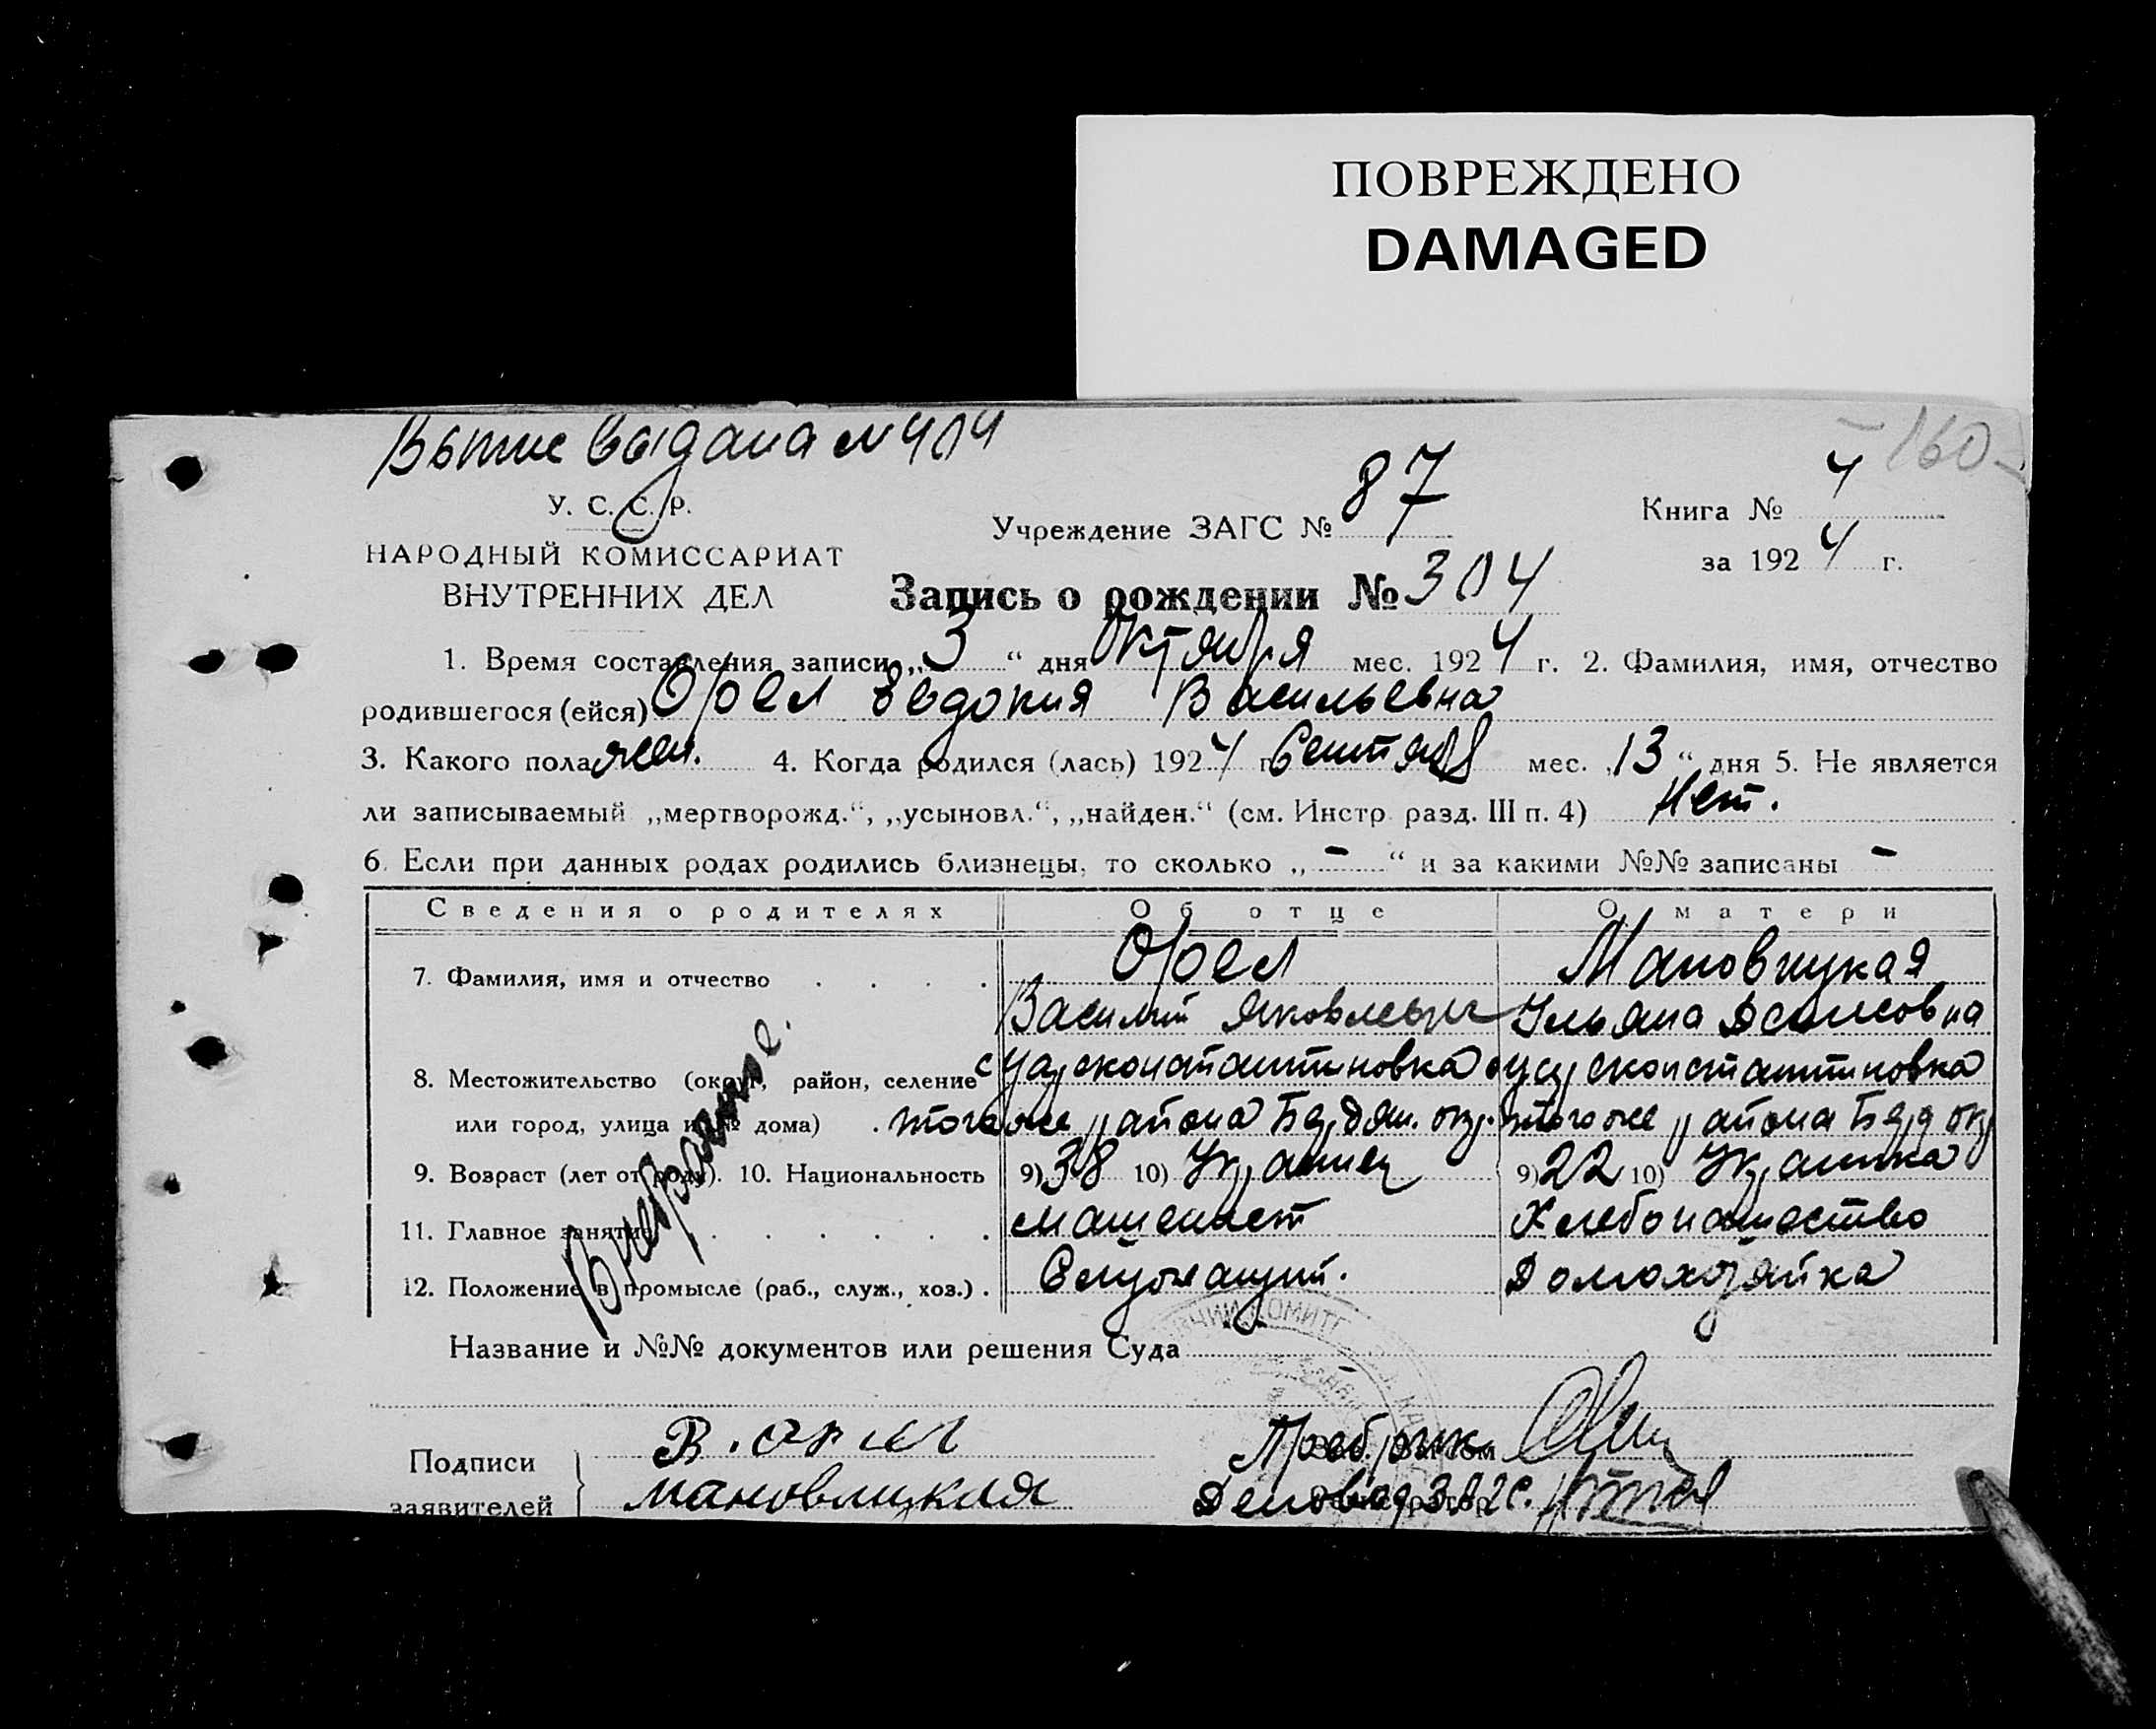 ПОВРЕЖДЕНО
DAMAGED
160
выдана № 404
У. С. С. Р.
Учреждение ЗАГС № 87
Книга № 4
НАРОДНЫЙ КОМИССАРИАТ
ВНУТРЕННИХ ДЕЛ
за 1924 г.
Запись о рождении № 304
1. Время составления записи „3“ дня Октября мес. 1924 г. 2. Фамилия, имя, отчество
родившегося (ейся) Орел Евдокия Васильевна
3. Какого пола жен. 4. Когда родился (лась) 1924 г. Сентября мес. „13“ дня 5. Не является
ли записываемый „мертворожд.“, „усыновл.“, „найден.“ (см. Инстр. разд. III п. 4) Нет.
6. Если при данных родах родились близнецы, то сколько „-“ и за какими №№ записаны -
Сведения о родителях Об отце О матери
7. Фамилия, имя и отчество . . . . Орел Мановицкая
Василий Яковлевич Ульяна Денисовна
8. Местожительство (округ, район, селение
или город, улица и № дома) . того же района Бердян. окр. того же района Берд окр
9. Возраст (лет от роду). 10. Национальность 9) 38 10) Украинец 9) 22 10) Украинка
11. Главное занятие . . . . . . машенист Хлебопашество
12. Положение в промысле (раб., служ., хоз.) . Служащий. Домохозяйка
Впервые.
Название и №№ документов или решения Суда -
Подписи
заявителей
В. орел
Мановицкая
Деловод ЗАГС.